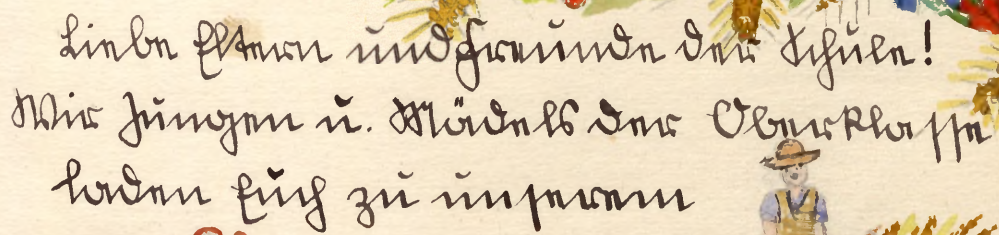 Liebe Eltern und Freunde der Schule!
Wir Jungen u. Mädels der Oberklasse
laden Euch zu unserem